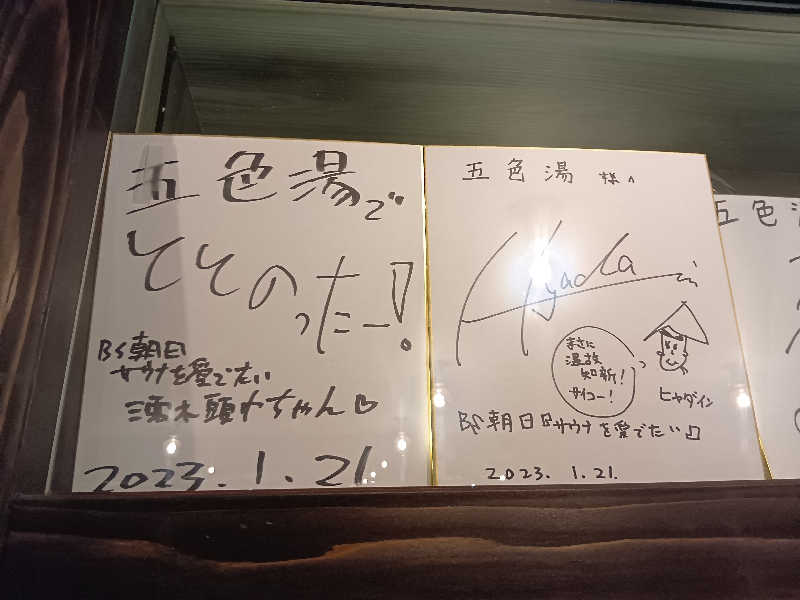 五色湯で
ととのったー!
BS朝日
サウナを愛でたい
ちゃん♡
2023.1.21
五色湯 様へ
Hyada
まさに
温故
知新!
サイコー!
ヒャダイン
BS朝日『サウナを愛でたい』
2023. 1.21.
五色湯